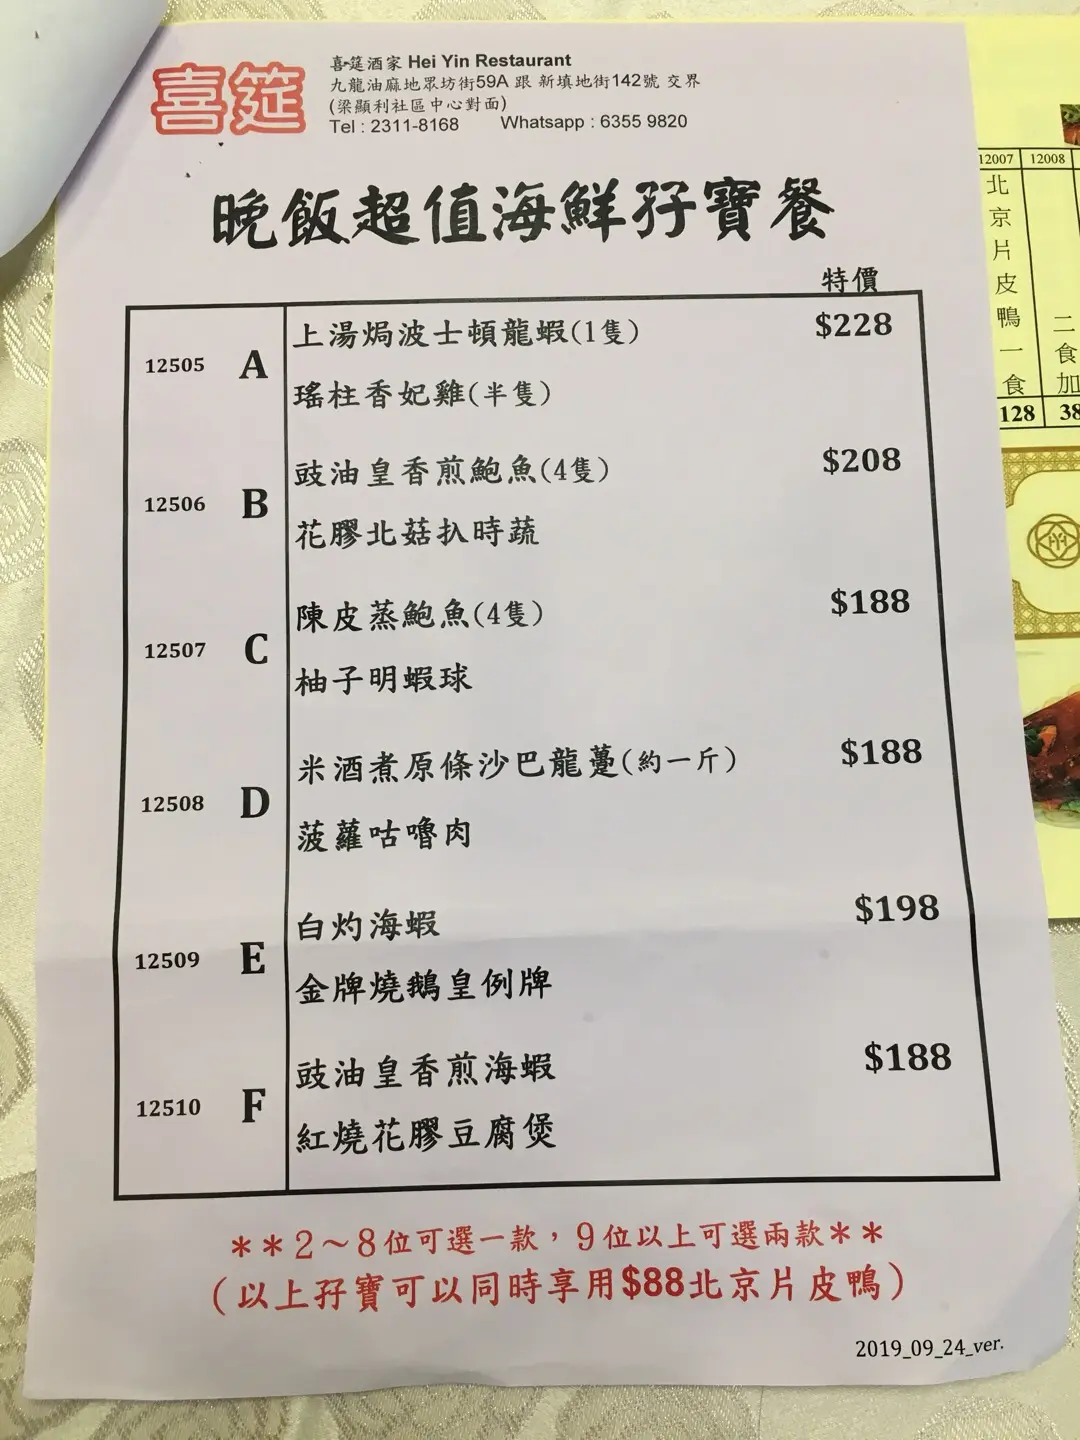 喜筵
喜筵酒家 Hei Yin Restaurant
九龍油麻地眾坊街59A 跟 新填地街142號 交界
(梁顯利社區中心對面)
Tel : 2311-8168 Whatsapp : 6355 9820
晚飯超值海鮮孖寶餐
特價
12505 A 上湯焗波士頓龍蝦(1隻) $228
瑤柱香妃雞(半隻)
12506 B 豉油皇香煎鮑魚(4隻) $208
花膠北菇扒時蔬
12507 C 陳皮蒸鮑魚(4隻) $188
柚子明蝦球
12508 D 米酒煮原條沙巴龍躉(約一斤) $188
菠蘿咕嚕肉
12509 E 白灼海蝦 $198
金牌燒鵝皇例牌
12510 F 豉油皇香煎海蝦 $188
紅燒花膠豆腐煲
**2～8位可選一款，9位以上可選兩款**
(以上孖寶可以同時享用$88北京片皮鴨)
2019_09_24_ver.
12007 12008
北京片皮鴨一食
二食加
128 38